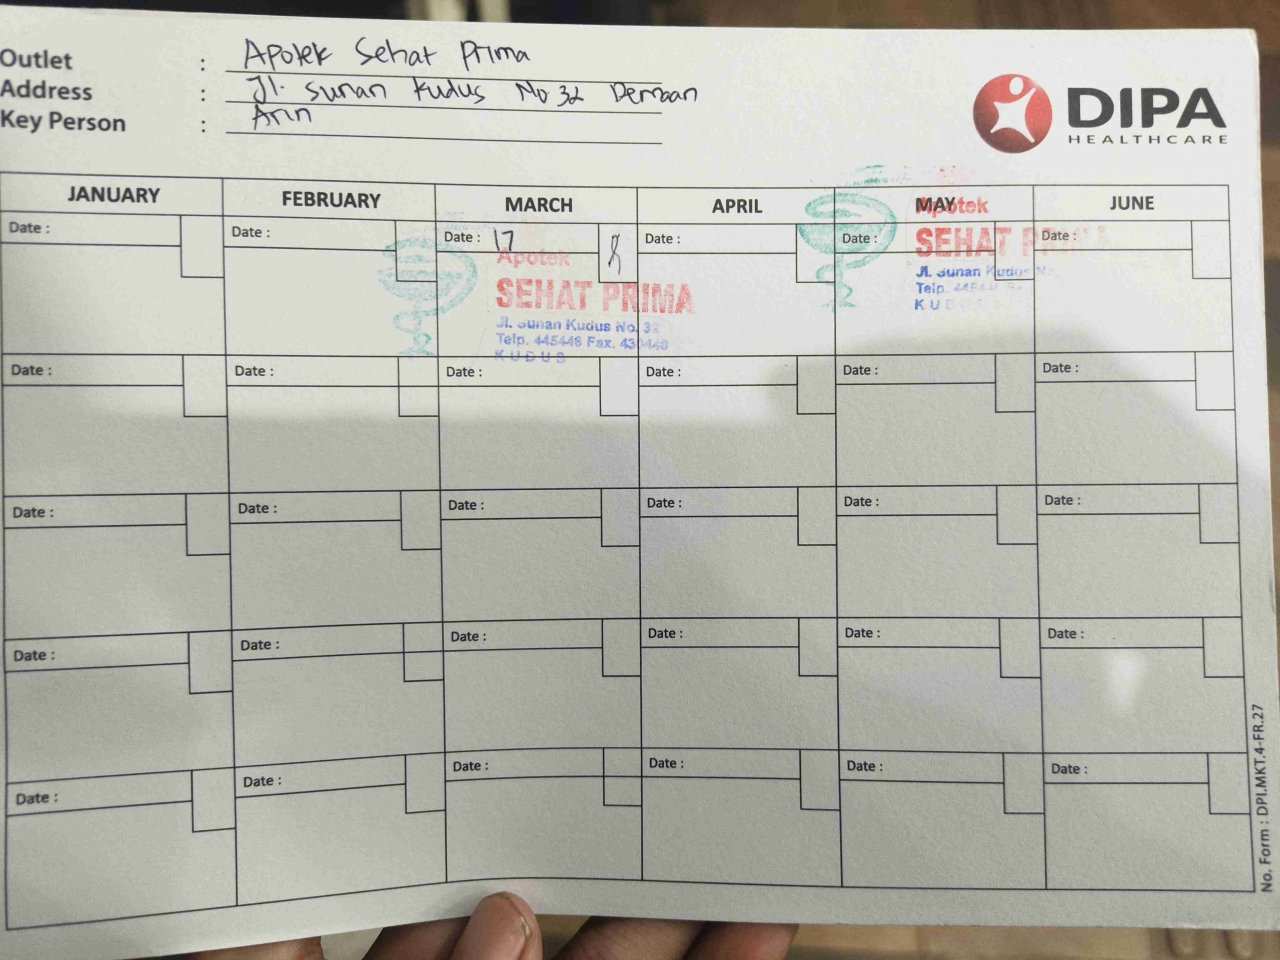 Outlet : Apotek Sehat Prima
Address : Jl. Sunan Kudus No 32 Demaan
Key Person : Arin
DIPA
HEALTHCARE
JANUARY FEBRUARY MARCH APRIL MAY JUNE
Date : Date : Date : 17 Date : Date : Date :
Apotek
SEHAT PRIMA
Jl. Sunan Kudus No. 32
Telp. 445448 Fax. 430448
KUDUS
Apotek
SEHAT PRIMA
Jl. Sunan Kudus No.
Telp.
KUDUS
Date : Date : Date : Date : Date : Date :
Date : Date : Date : Date : Date : Date :
Date : Date : Date : Date : Date : Date :
Date : Date : Date : Date : Date : Date :
No. Form : DPI.MKT.4-FR.27